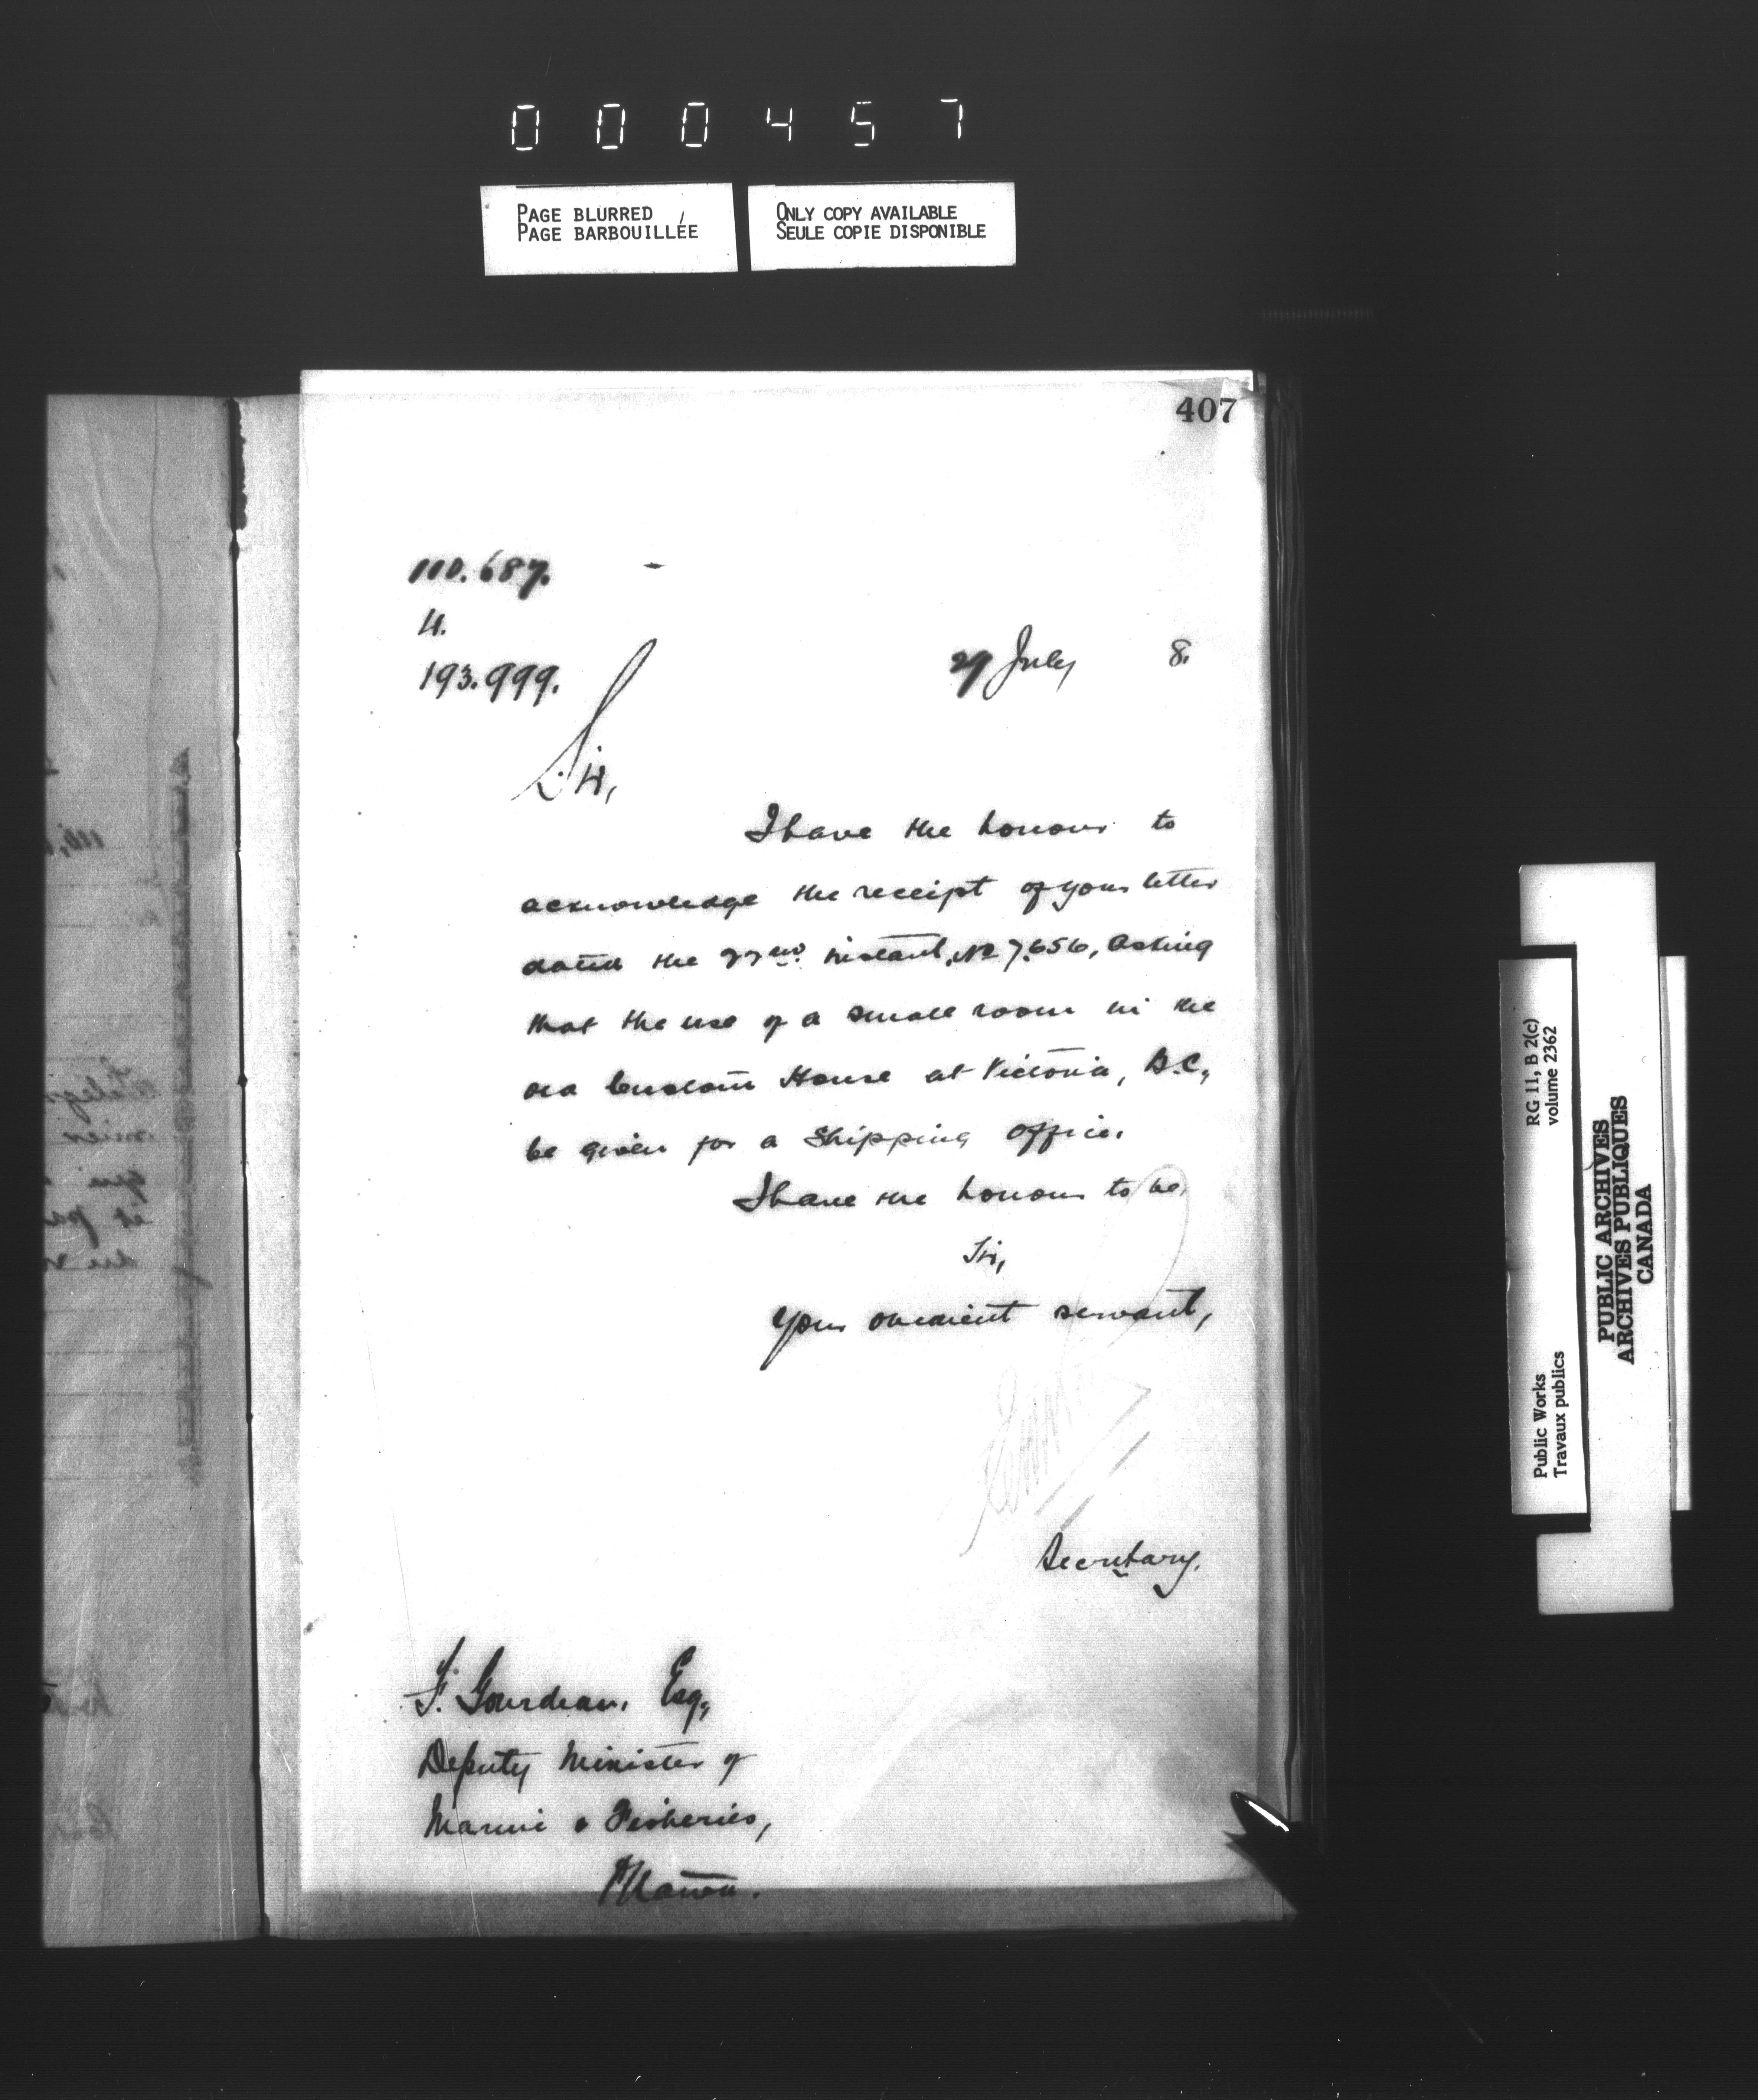 000457
PAGE BLURRED
PAGE BARBOUILLÉE
ONLY COPY AVAILABLE
SEULE COPIE DISPONIBLE
407
110.687.
4.
193.999.
29 July 8.
Sir,
I have the honour to
acknowledge the receipt of your letter
dated the 22nd instant, No 7.656, asking
that the use of a small room in the
old Custom House at Victoria, B.C.,
be given for a Shipping Office.
I have the honour to be,
Sir,
Your obedient servant,
Secretary.
F. Gourdeau, Esq.,
Deputy Minister of
Marine & Fisheries,
Ottawa.
RG 11, B 2(c)
volume 2362
Public Works
Travaux publics
PUBLIC ARCHIVES
ARCHIVES PUBLIQUES
CANADA